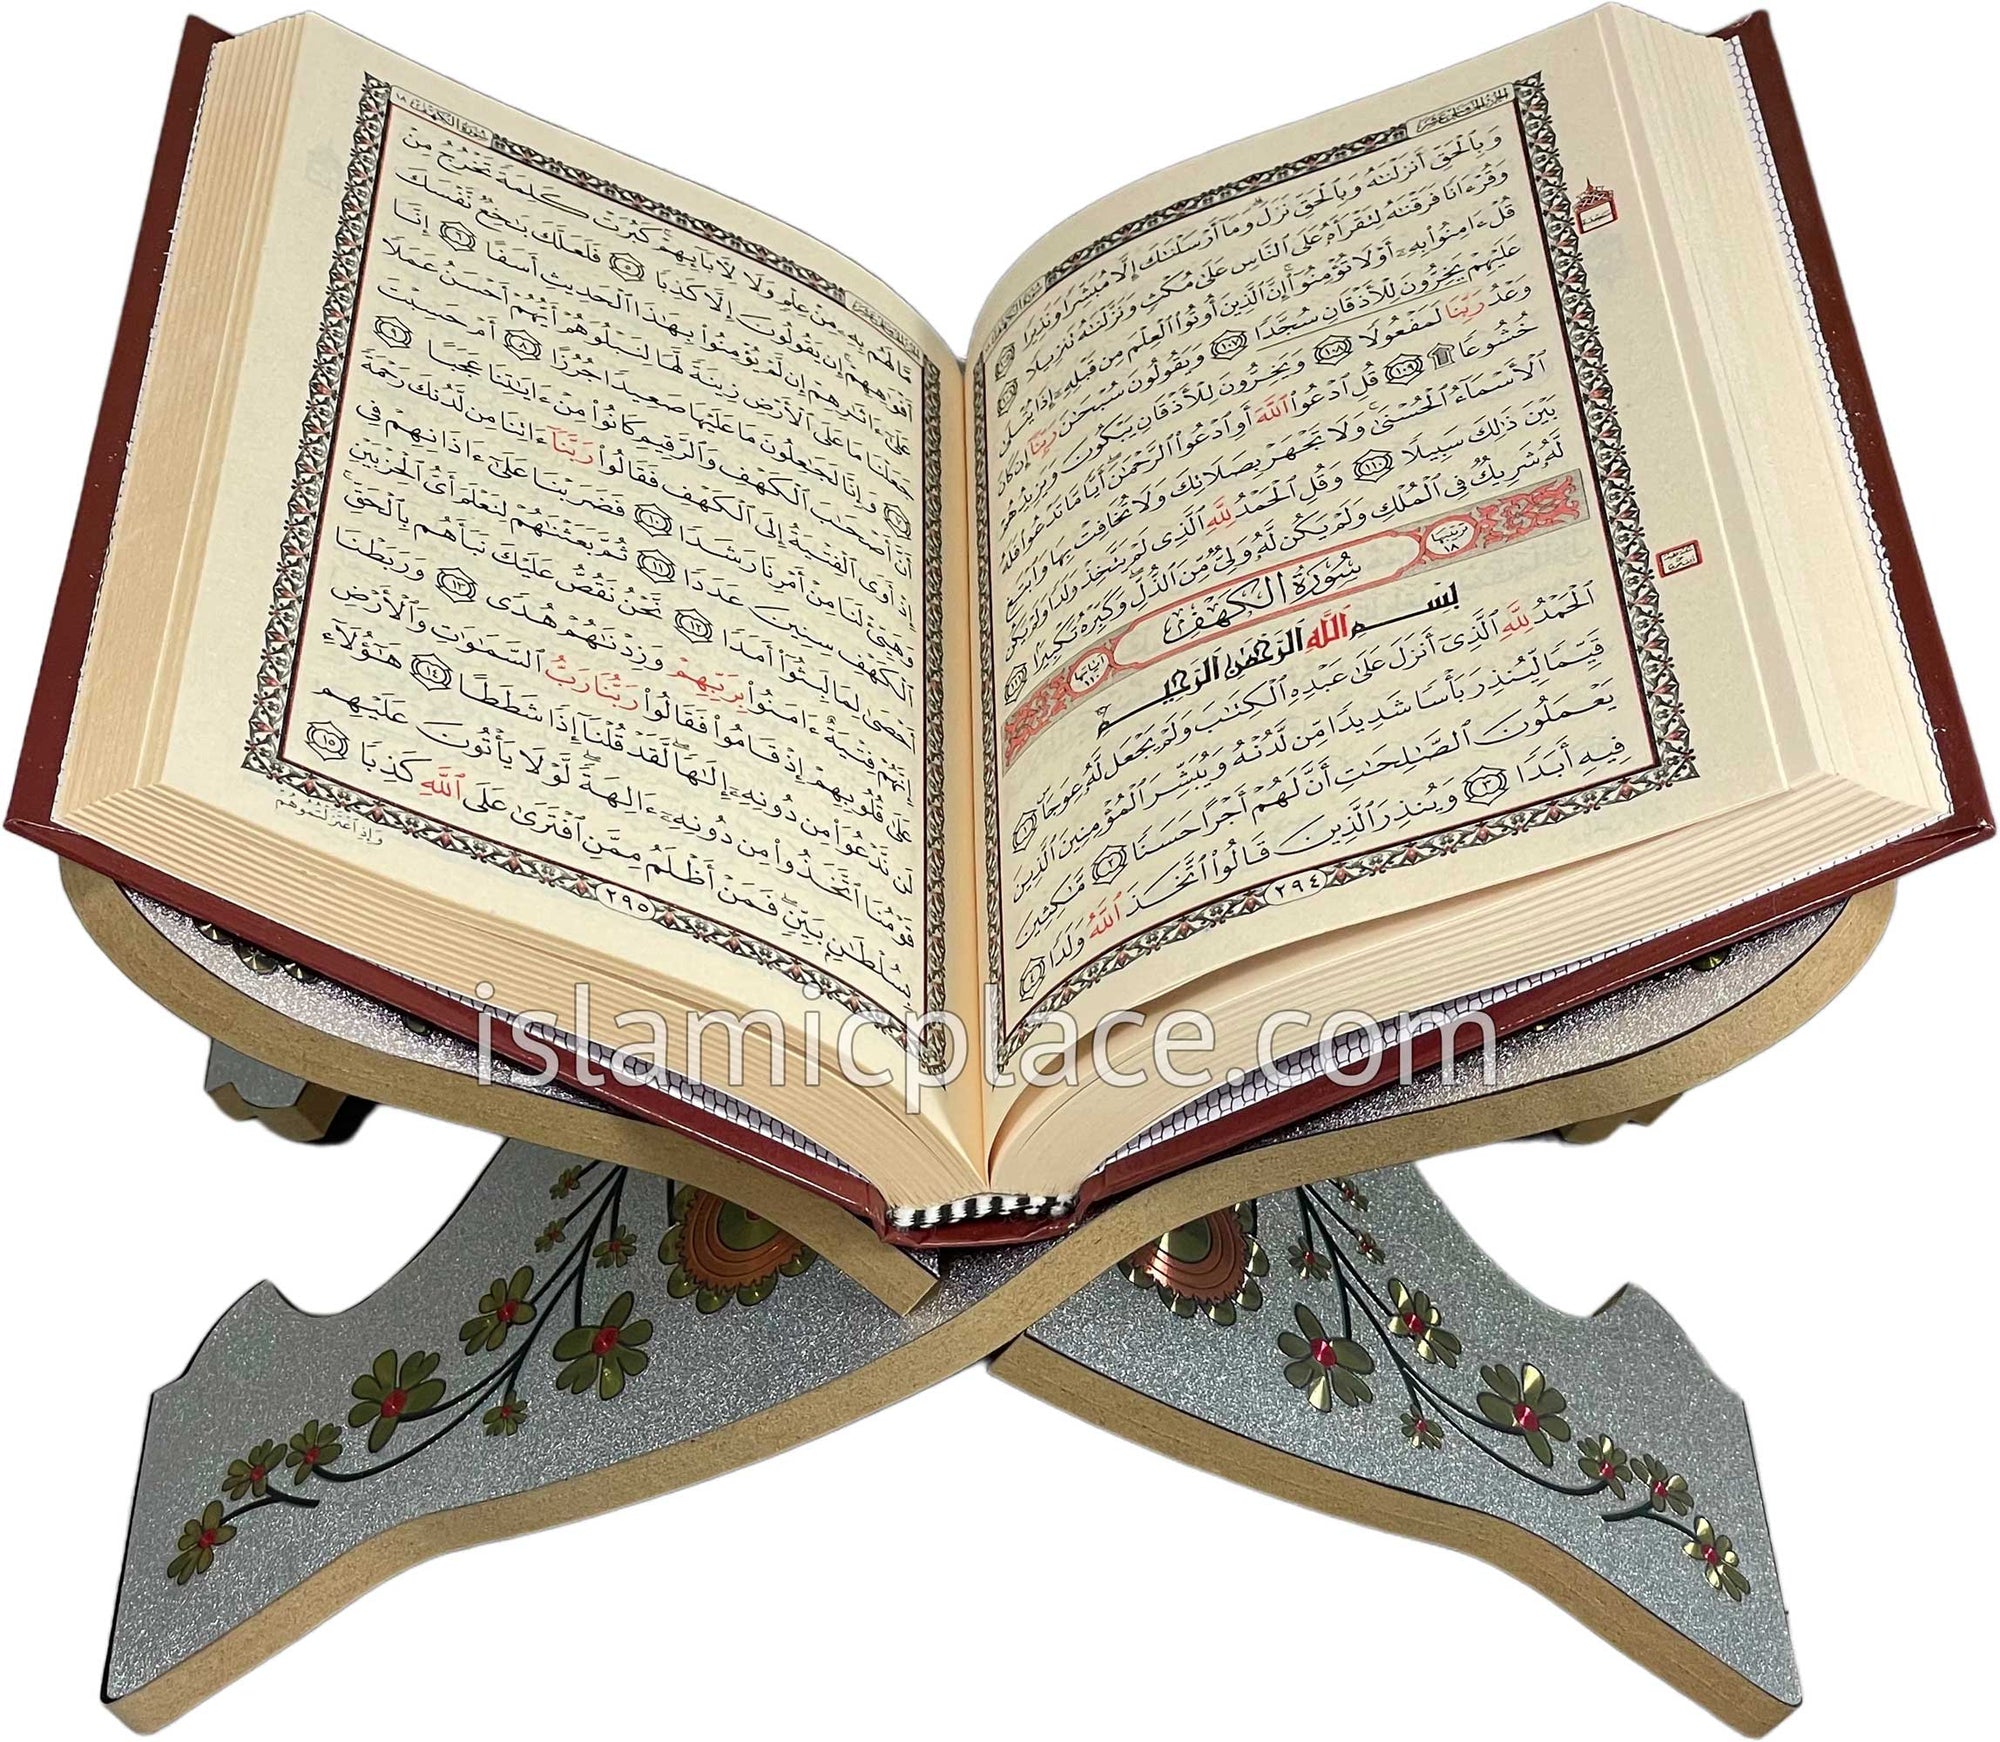 الجزء الخامس عشر
سورة الكهف
وَبِالْحَقِّ أَنزَلْنَٰهُ وَبِالْحَقِّ نَزَلَ وَمَآ أَرْسَلْنَٰكَ إِلَّا مُبَشِّرًا وَنَذِيرًا ١٠٥
وَقُرْءَانًا فَرَقْنَٰهُ لِتَقْرَأَهُۥ عَلَى النَّاسِ عَلَىٰ مُكْثٍ وَنَزَّلْنَٰهُ تَنزِيلًا ١٠٦
قُلْ ءَامِنُوا۟ بِهِۦٓ أَوْ لَا تُؤْمِنُوٓا۟ إِنَّ الَّذِينَ أُوتُوا۟ الْعِلْمَ مِن قَبْلِهِۦٓ إِذَا يُتْلَىٰ
عَلَيْهِمْ يَخِرُّونَ لِلْأَذْقَانِ سُجَّدًا ١٠٧ وَيَقُولُونَ سُبْحَٰنَ رَبِّنَآ إِن كَانَ
وَعْدُ رَبِّنَا لَمَفْعُولًا ١٠٨ وَيَخِرُّونَ لِلْأَذْقَانِ يَبْكُونَ وَيَزِيدُهُمْ
خُشُوعًا ۩ ١٠٩ قُلِ ادْعُوا۟ اللَّهَ أَوِ ادْعُوا۟ الرَّحْمَٰنَ أَيًّا مَّا تَدْعُوا۟ فَلَهُ
الْأَسْمَآءُ الْحُسْنَىٰ وَلَا تَجْهَرْ بِصَلَاتِكَ وَلَا تُخَافِتْ بِهَا وَابْتَغِ
بَيْنَ ذَٰلِكَ سَبِيلًا ١١٠ وَقُلِ الْحَمْدُ لِلَّهِ الَّذِى لَمْ يَتَّخِذْ وَلَدًا وَلَمْ يَكُن
لَّهُۥ شَرِيكٌ فِى الْمُلْكِ وَلَمْ يَكُن لَّهُۥ وَلِىٌّ مِّنَ الذُّلِّ وَكَبِّرْهُ تَكْبِيرًا ١١١
ترتيبها ١٨ سُورَةُ الْكَهْفِ آياتها ١١٠
بِسْمِ اللَّهِ الرَّحْمَٰنِ الرَّحِيمِ
الْحَمْدُ لِلَّهِ الَّذِىٓ أَنزَلَ عَلَىٰ عَبْدِهِ الْكِتَٰبَ وَلَمْ يَجْعَل لَّهُۥ عِوَجَا ١
قَيِّمًا لِّيُنذِرَ بَأْسًا شَدِيدًا مِّن لَّدُنْهُ وَيُبَشِّرَ الْمُؤْمِنِينَ الَّذِينَ
يَعْمَلُونَ الصَّٰلِحَٰتِ أَنَّ لَهُمْ أَجْرًا حَسَنًا ٢ مَّٰكِثِينَ
فِيهِ أَبَدًا ٣ وَيُنذِرَ الَّذِينَ قَالُوا۟ اتَّخَذَ اللَّهُ وَلَدًا ٤
٢٩٤
سورة الكهف ١٨
مَّا لَهُم بِهِۦ مِنْ عِلْمٍ وَلَا لِءَابَآئِهِمْ كَبُرَتْ كَلِمَةً تَخْرُجُ مِنْ
أَفْوَٰهِهِمْ إِن يَقُولُونَ إِلَّا كَذِبًا ٥ فَلَعَلَّكَ بَٰخِعٌ نَّفْسَكَ
عَلَىٰٓ ءَاثَٰرِهِمْ إِن لَّمْ يُؤْمِنُوا۟ بِهَٰذَا الْحَدِيثِ أَسَفًا ٦ إِنَّا
جَعَلْنَا مَا عَلَى الْأَرْضِ زِينَةً لَّهَا لِنَبْلُوَهُمْ أَيُّهُمْ أَحْسَنُ عَمَلًا
٧ وَإِنَّا لَجَٰعِلُونَ مَا عَلَيْهَا صَعِيدًا جُرُزًا ٨ أَمْ حَسِبْتَ
أَنَّ أَصْحَٰبَ الْكَهْفِ وَالرَّقِيمِ كَانُوا۟ مِنْ ءَايَٰتِنَا عَجَبًا ٩
إِذْ أَوَى الْفِتْيَةُ إِلَى الْكَهْفِ فَقَالُوا۟ رَبَّنَآ ءَاتِنَا مِن لَّدُنكَ رَحْمَةً
وَهَيِّئْ لَنَا مِنْ أَمْرِنَا رَشَدًا ١٠ فَضَرَبْنَا عَلَىٰٓ ءَاذَانِهِمْ فِى
الْكَهْفِ سِنِينَ عَدَدًا ١١ ثُمَّ بَعَثْنَٰهُمْ لِنَعْلَمَ أَىُّ الْحِزْبَيْنِ
أَحْصَىٰ لِمَا لَبِثُوٓا۟ أَمَدًا ١٢ نَّحْنُ نَقُصُّ عَلَيْكَ نَبَأَهُم بِالْحَقِّ
إِنَّهُمْ فِتْيَةٌ ءَامَنُوا۟ بِرَبِّهِمْ وَزِدْنَٰهُمْ هُدًى ١٣ وَرَبَطْنَا
عَلَىٰ قُلُوبِهِمْ إِذْ قَامُوا۟ فَقَالُوا۟ رَبُّنَا رَبُّ السَّمَٰوَٰتِ وَالْأَرْضِ
لَن نَّدْعُوَا۟ مِن دُونِهِۦٓ إِلَٰهًا لَّقَدْ قُلْنَآ إِذًا شَطَطًا ١٤ هَٰٓؤُلَآءِ
قَوْمُنَا اتَّخَذُوا۟ مِن دُونِهِۦٓ ءَالِهَةً لَّوْلَا يَأْتُونَ عَلَيْهِم
بِسُلْطَٰنٍ بَيِّنٍ فَمَنْ أَظْلَمُ مِمَّنِ افْتَرَىٰ عَلَى اللَّهِ كَذِبًا ١٥
وَإِذِ اعْتَزَلْتُمُوهُمْ
٢٩٥
islamicplace.com